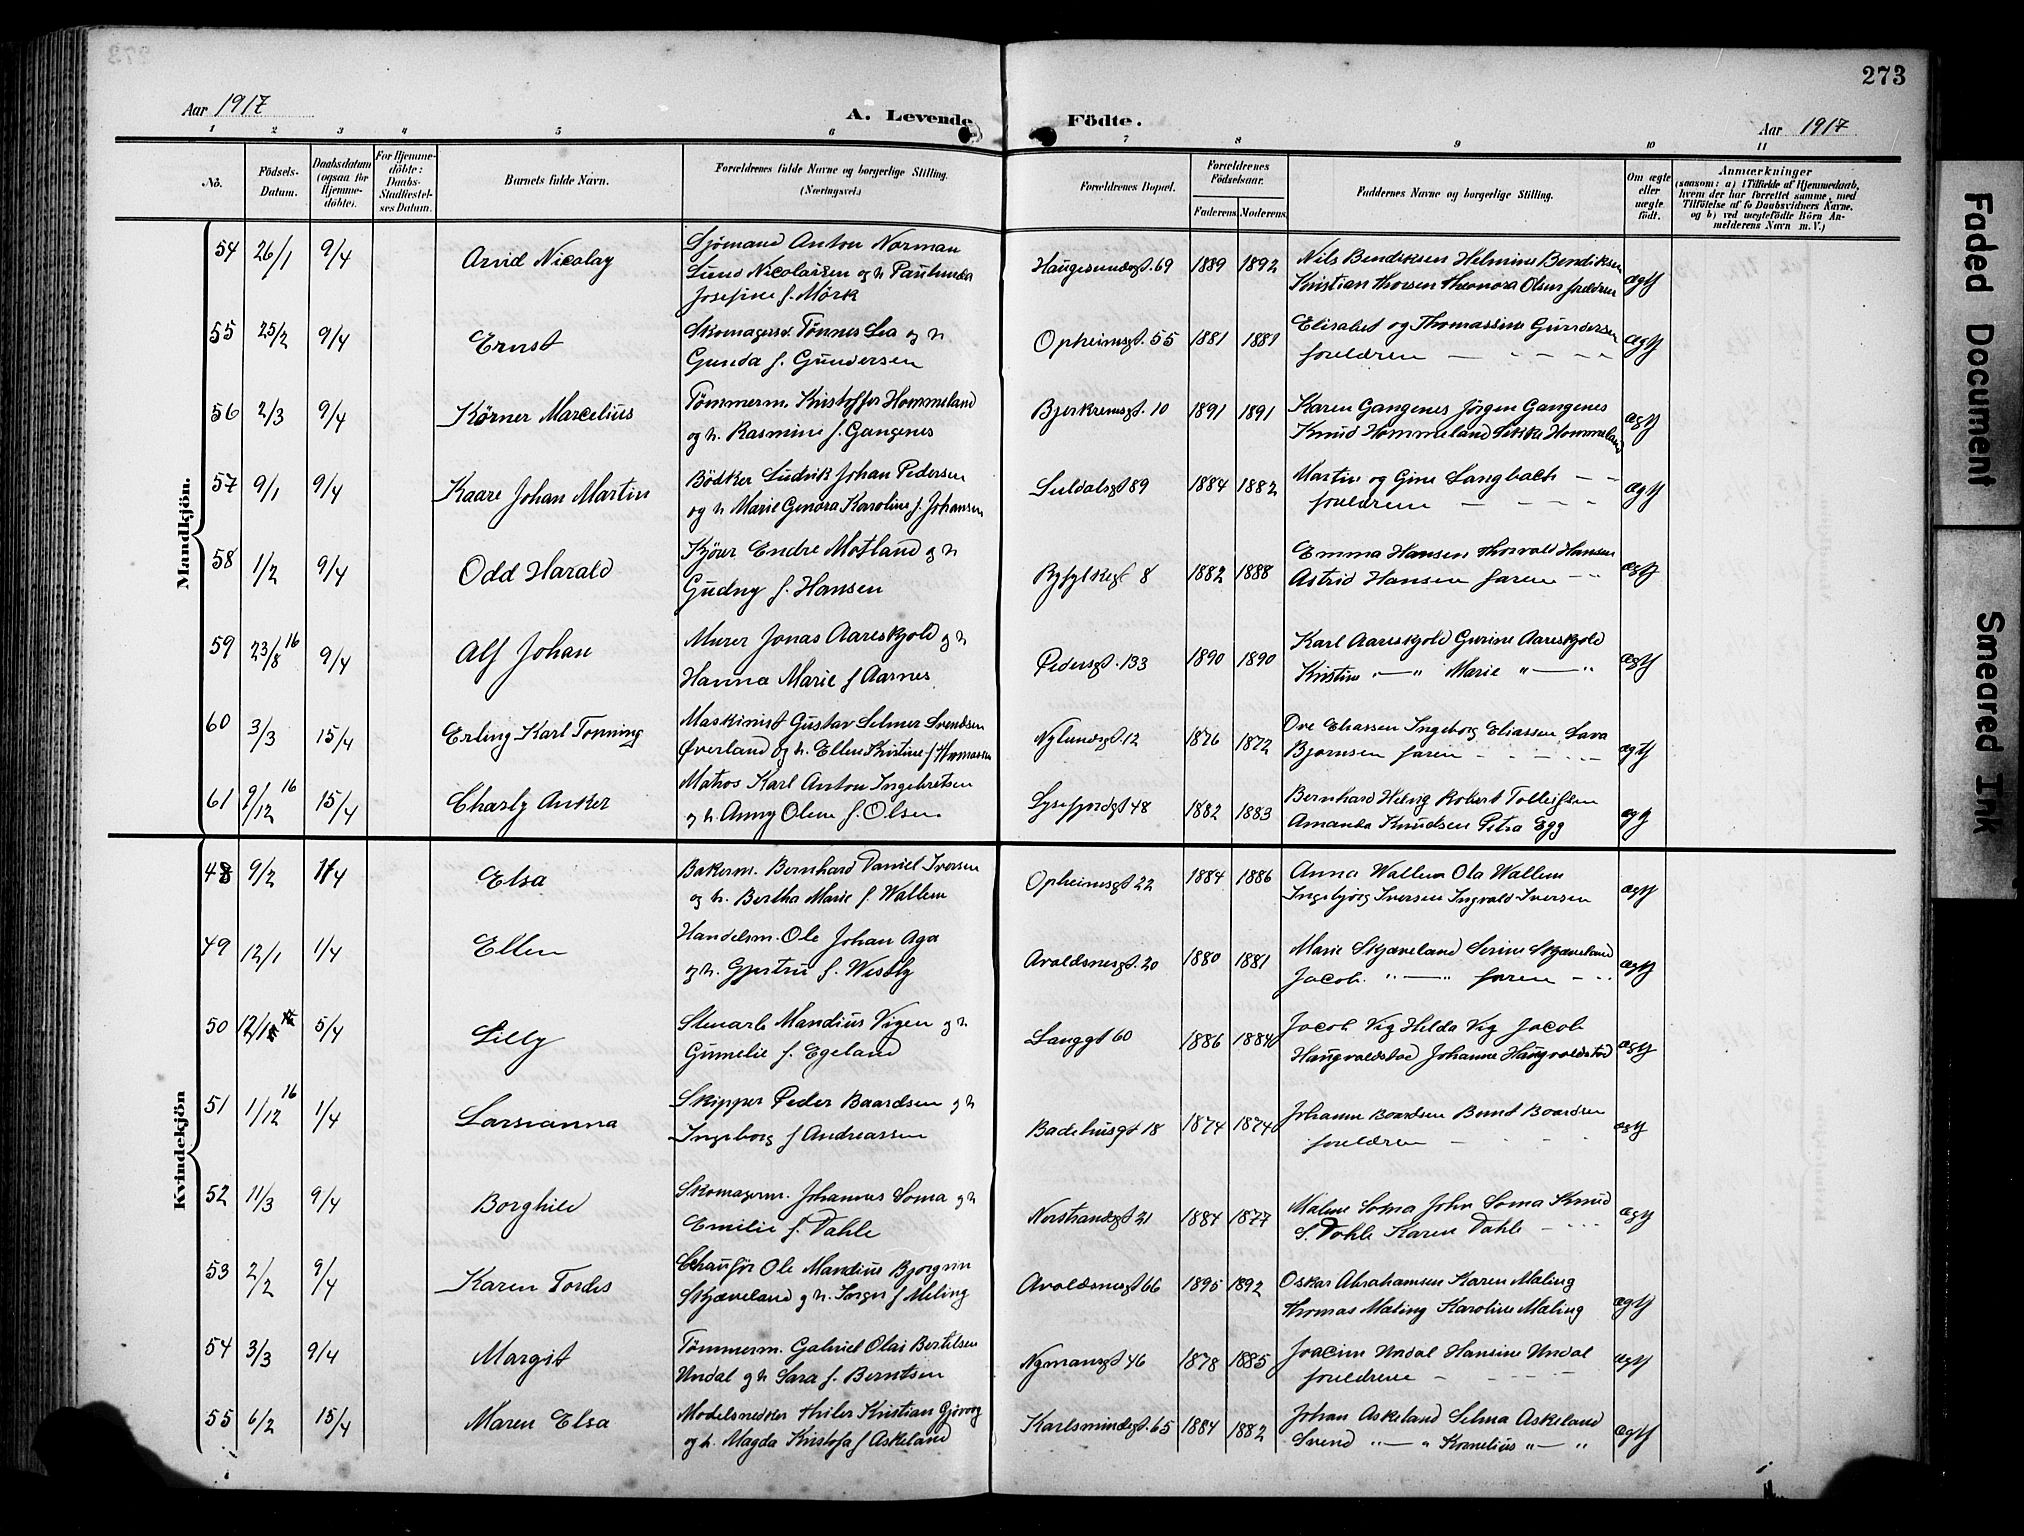 273
Aar 1917
A. Levende Födte.
Aar 1917
1 2 3 4 5 6 7 8 9 10 11
No.
Födsels-
Datum.
Daabsdatum
(ogsaa for
Hjemme-
döbte).
For Hjemme-
döbte:
Daabs-
Stadfæstel-
ses Datum.
Barnets fulde Navn.
Forældrenes fulde Navne og borgerlige Stilling.
(Næringsvei.)
Forældrenes Bopæl.
Forældrenes
Födselsaar.
Faderens. Moderens.
Faddernes Navne og borgerlige Stilling.
Om ægte
eller
uægte
födt.
Anmærkninger
(saasom: a) i Tilfælde af Hjemmedaab,
hvem der har forrettet samme, med
Tilföielse af to Daabsvidners Navne.
og b) ved uægtefödte Börn An-
melderens Navn m. V.)
Mandkjön.
54 26/1 9/4 Arvid Nicolay
Sjømand Anton Norman
Lund Nicolaisen og h Paulunda
Josefine f. Mörk
Haugesundsgt. 69 1889 1892
Nils Bendiksen Helmine Bendiksen
Kristian Thorsen Theonora Olsen foreldrene
ægt
55 25/2 9/4 Ernst
Skomagersv. Tønnes Lea og h
Gunda f. Gundersen
Opheimsgt. 55 1881 1881
Elisabet og Thomassine Gundersen
foreldrene
ægt
56 2/3 9/4 Körner Marcelius
Tømmerm. Kristoffer Hommeland
og h. Rasmine f. Gangenes
Bjerkreimsgt. 10 1891 1891
Karen Gangenes Jörgen Gangenes
Knud Hommeland Sikke Hommeland
ægt
57 9/1 9/4 Kaare Johan Martin
Bödker Ludvik Johan Pedersen
og h Marie Genora Karoline f. Johansen
Suldalsgt 89 1884 1882
Martin og Gine Langbach
foreldrene
ægt
58 1/2 9/4 Odd Harald
Kjörer Endre Motland og h
Gudny f. Hansen
Ryfylkegt 8 1882 1888
Emma Hansen Thorvald Hansen
Astrid Hansen faren
ægt
59 23/8 16 9/4 Alf Johan
Murer Jonas Aareskjold og h
Hanna Marie f Aarnes
Pedersgt. 133 1890 1890
Karl Aareskjold Gurine Aareskjold
Kristine " — " Marie " — "
ægt
60 3/3 15/4 Erling Karl Tonning
Maskinist Gustav Selmer Svendsen
Øverland og h. Ellen Kristine f Thomassen
Nylundsgt. 12 1876 1872
Ove Eliassen Ingeborg Eliassen Lava
Bjørnsen faren
ægt
61 9/12 16 15/4 Charly Anker
Matros Karl Anton Ingebretsen
og h. Anny Olene f. Olsen
Lysefjordgt 48 1882 1883
Bernhard Helvig Robert Tolleifsen
Amanda Knudsen Petra Egg
ægt
Kvindekjön
48 9/2 1/4 Elsa
Bakerm. Bernhard Daniel Iversen
og h. Bertha Marie f. Wallem
Opheimsgt 22 1884 1886
Anna Wallem Ola Wallem
Ingebjørg Iversen Ingvald Iversen
ægt
49 12/1 1/4 Ellen
Handelsm. Ole Johan Aga
og h. Gjertru f. Westby
Avaldsnesgt. 20 1880 1881
Marie Skjæveland Serine Skjæveland
Jacob " — " faren
ægt
50 5/4 Lilly
Stuearb Mandius Vigen og h
Gumelie f. Egeland
Langgt 60 1886 1884
Jacob Vig Hilda Vig Jacob
Haugvaldstad Johanne Haugvaldstad
ægt
51 1/12 16 1/4 Larsianna
Skipper Peder Baardsen og h
Ingeborg f Andreassen
Badehusgt 18 1874 1874
Johanne Baardsen Bernt Baardsen
foreldrene
ægt
52 11/3 9/4 Borghild
Skomagerm. Johannes Soma og h
Emilie f. Dahle
Norstrandsgt 21 1884 1877
Malene Soma John Soma Knud
S. Dahle Karen Dahle
ægt
53 2/2 9/4 Karen Tordis
Chaufför Ole Mandius Bjorgum
Skjæveland og h. Inger f Meling
Avaldsnesgt 66 1895 1892
Oskar Abrahamsen Karen Maling
Thomas Maling Karoline Maling
ægt
54 3/3 9/4 Margit
Tømmerm. Gabriel Olai Bertilsen
Undal og h Sara f. Berntsen
Nymansgt 46 1878 1885
Joacim Undal Hansine Undal
foreldrene
ægt
55 6/2 15/4 Maren Elsa
Modelsnedker Thiler Kristian Gjövog
og h. Magda Kristofa f Askeland
Karlsmindegt. 65 1884 1882
Johan Askeland Selma Askeland
Svend " — " Kornelius " — "
ægt
Faded Document
Smeared Ink